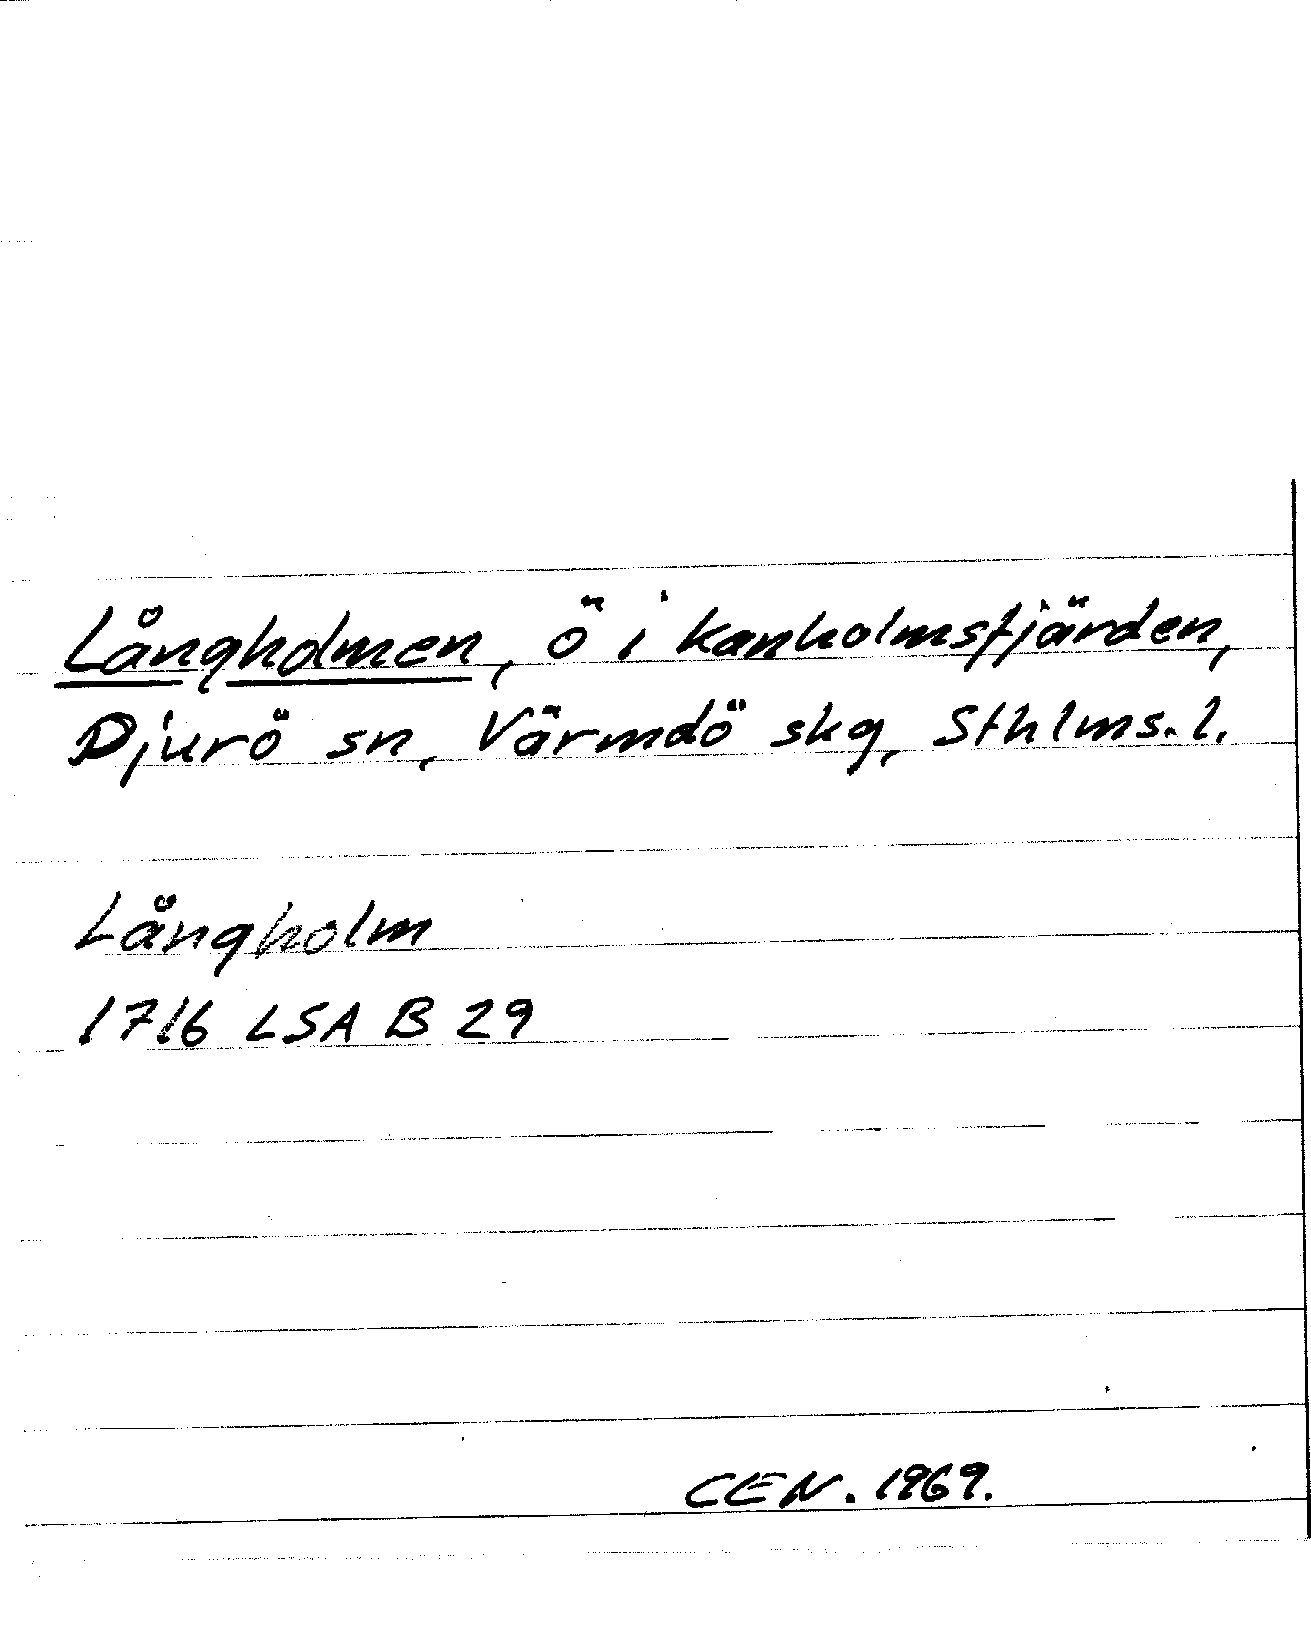 Långholmen, ö i Kanholmsfjärden,
Djurö sn, Värmdö skg, Sthlms. l.
Långholm
1716 LSA B 29
CEN. 1969.